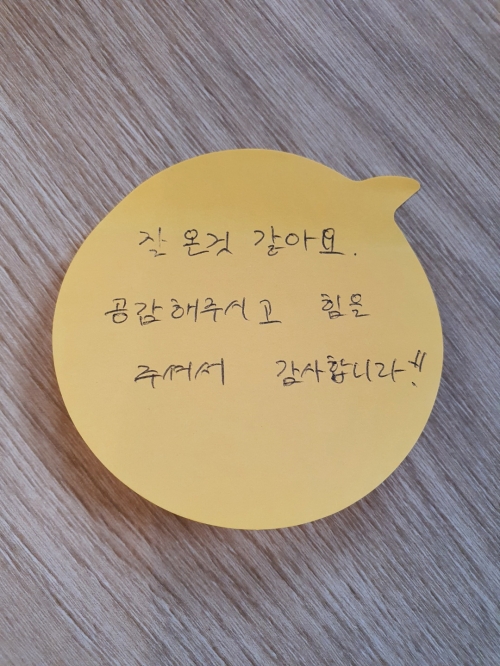 잘 온것 같아요.
공감해주시고 힘을
주셔서 감사합니다!!